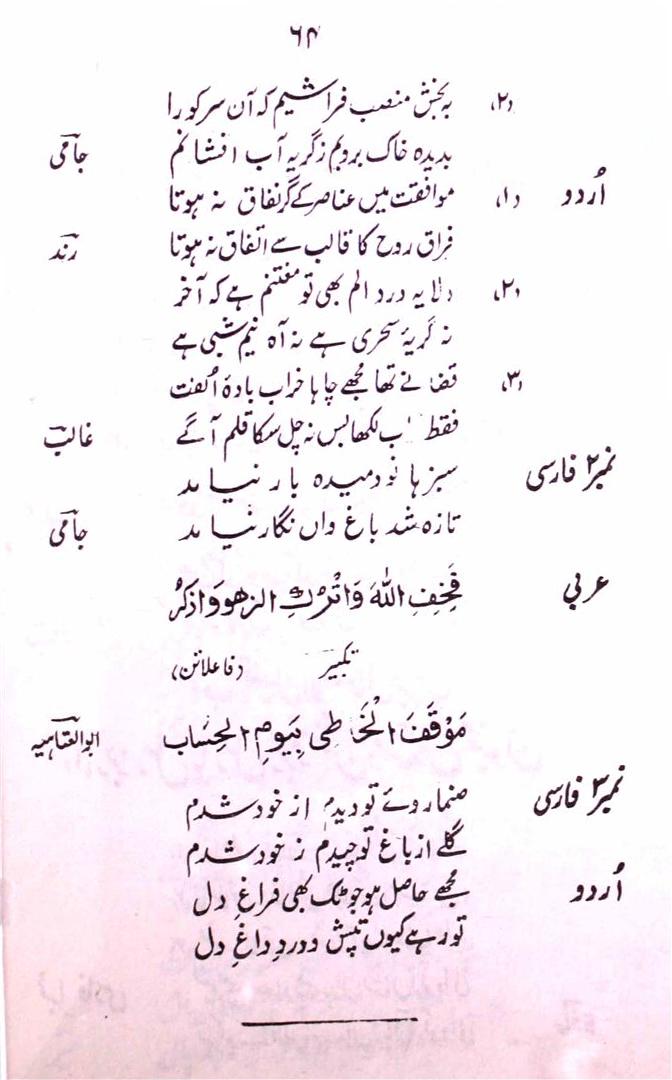 ۶۴
(۲) بہ بخش منصب فراشیم کہ آن سر کو را
بدیدہ خاک بروبم ز گریہ آب افشانم جامی
اُردو (۱) موافقت میں عناصر کے گر نفاق نہ ہوتا
فراق روح کا قالب سے اتفاق نہ ہوتا رند
(۲) دلا یہ درد الم بھی تو مغتنم ہے کہ آخر
نہ گریۂ سحری ہے نہ آہ نیم شبی ہے
(۳) قضا نے تھا مجھے چاہا خراب بادۂ اُلفت
فقط لکھا بس نہ چل سکا قلم آگے غالب
نمبر۲ فارسی سبزہا نو دمیدہ یار نیامد
تازہ شد باغ واں نگار نیامد جامی
عربی فَخِفِ اللّٰهَ وَاتْرُكِ الزھو وَاذْكُرْ
تکبیر (فاعلاتن)
مَوْقَفَ الْخَاطِی بِيَومِ الحِسَاب ابوالعتاہیہ
نمبر۳ فارسی صنما روے تو دیدم از خود شدم
گلے از باغ تو چیدم ز خود شدم
اُردو مجھے حاصل ہو جو ٹک بھی فراغِ دل
تو رہے کیوں تپش و دردِ داغِ دل